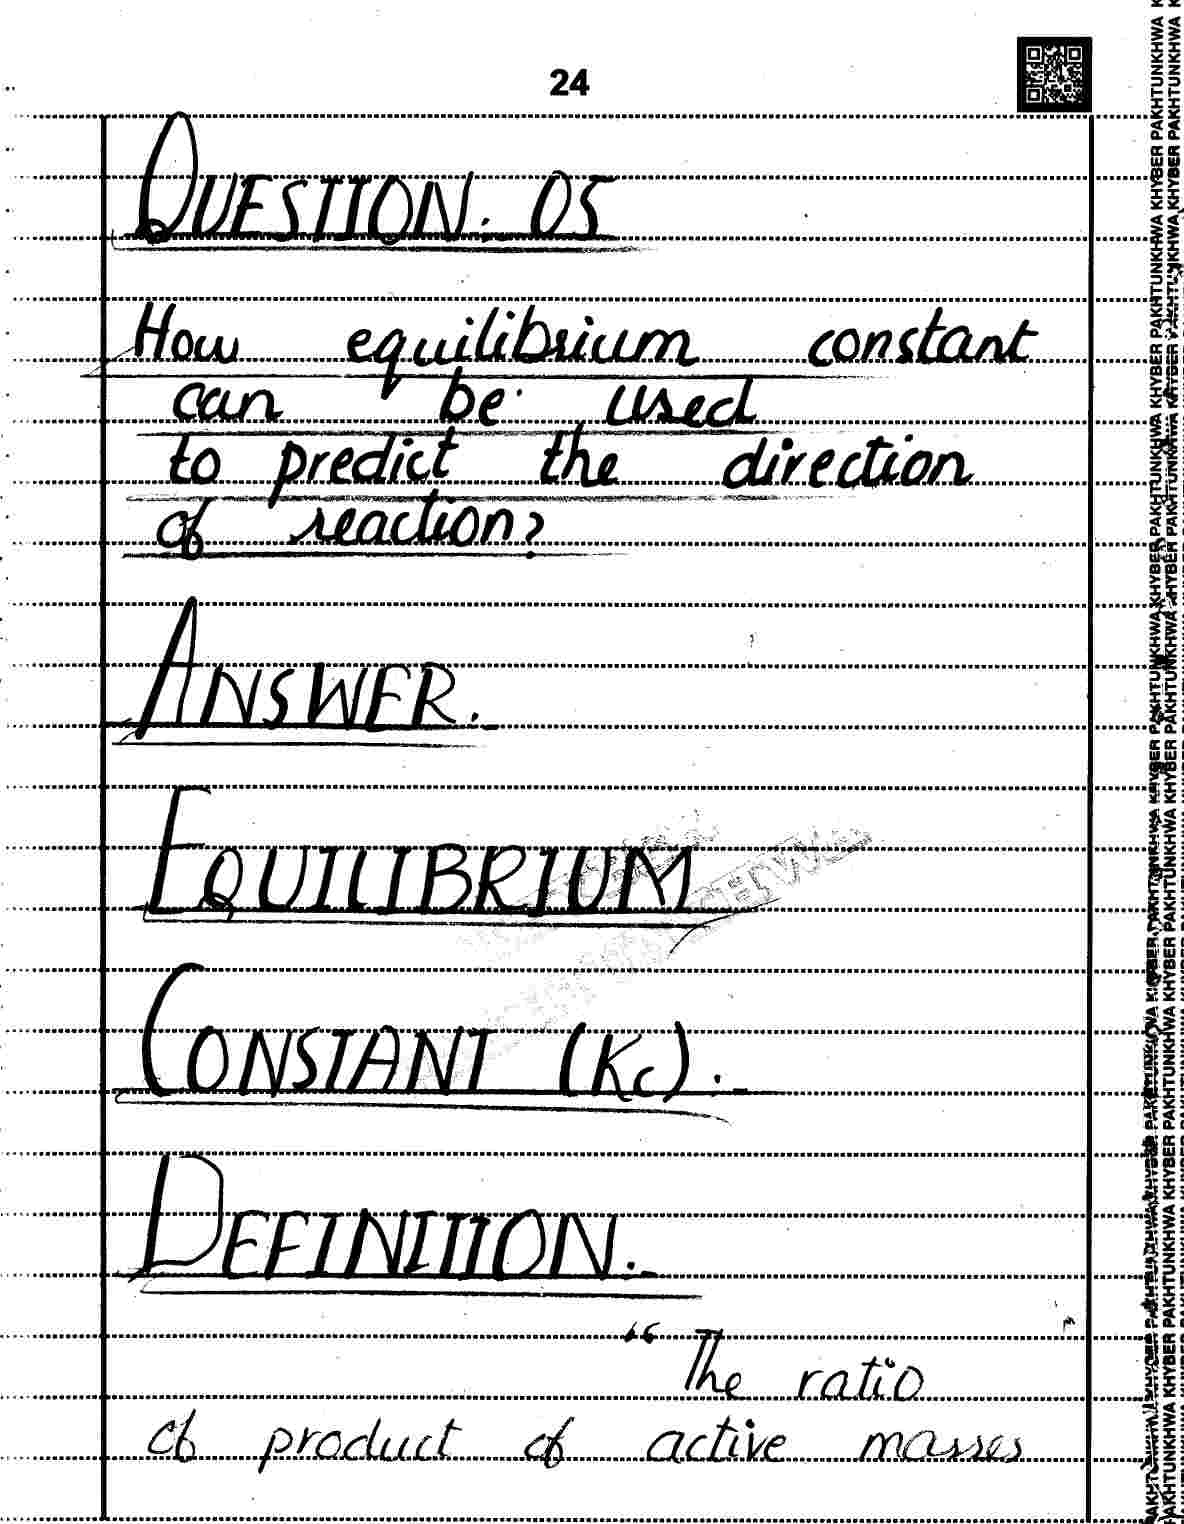 24
QUESTION:- 05
How equilibrium constant
can be used
to predict the direction
of reaction?
ANSWER:-
EQUILIBRIUM
CONSTANT (Kc):-
DEFINITION:-
"The ratio
of product of active masses
KHYBER PAKHTUNKHWA KHYBER PAKHTUNKHWA KHYBER PAKHTUNKHWA KHYBER PAKHTUNKHWA